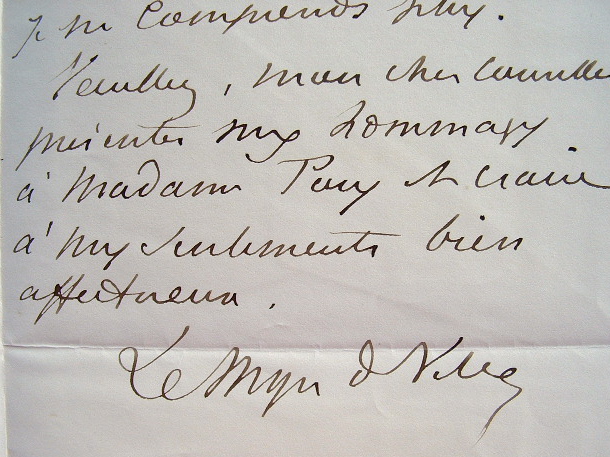 je ne comprends plus.
Veuillez, mon cher
présenter mes hommages
à Madame et croire
à mes sentiments bien
affectueux.
Le Myre de Vilers